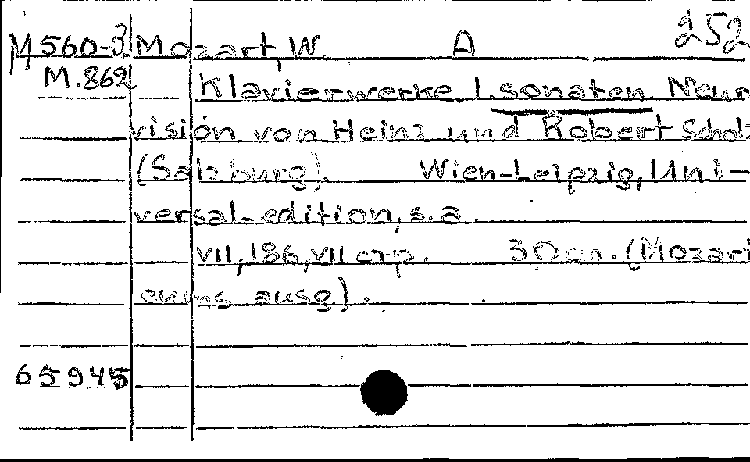 252
M560-3 Mozart, W. A
M.862 Klavierwerke I. Sonaten Neur
vision von Heinz und Robert Scholz
(Salzburg). Wien-Leipzig, Uni-
versal-edition, s.a.
VII, 186, VII стр. 30 cm. (Mozart
ausg).
65945